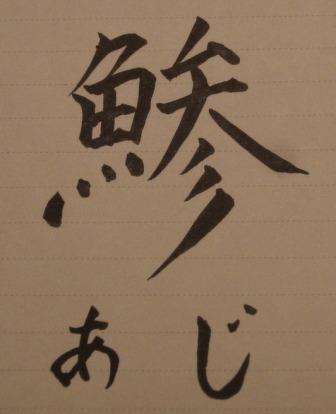 鯵
あじ